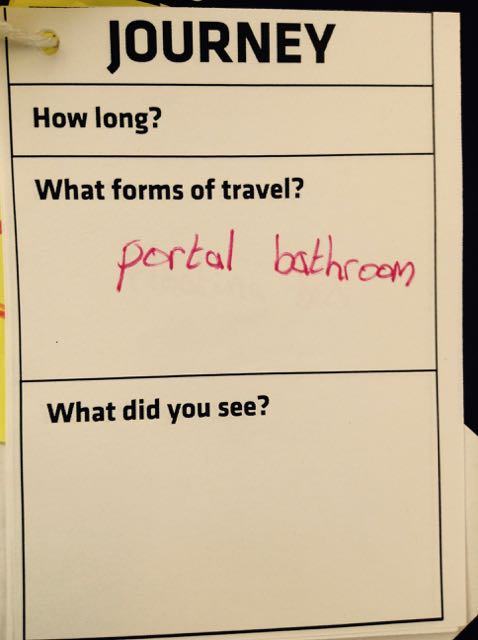 JOURNEY
How long?
What forms of travel?
portal bathroom
What did you see?